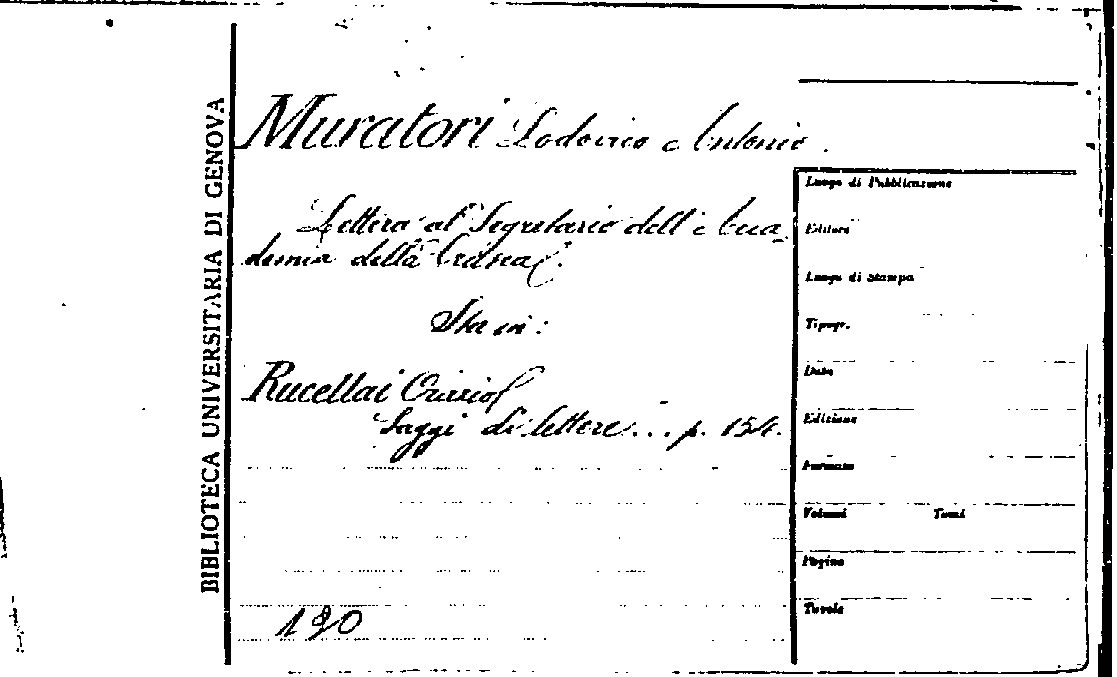 BIBLIOTECA UNIVERSITARIA DI GENOVA
Muratori Lodovico Antonio.
Lettera al Segretario dell'Acca-
demia della Crusca.
Sta in:
Rucellai Orazio
Saggi di lettere... p. 154.
190
Luogo di Pubblicazione
Editori
Luogo di stampa
Tipogr.
Data
Edizione
Formato
Volumi Tomi
Pagine
Tavole